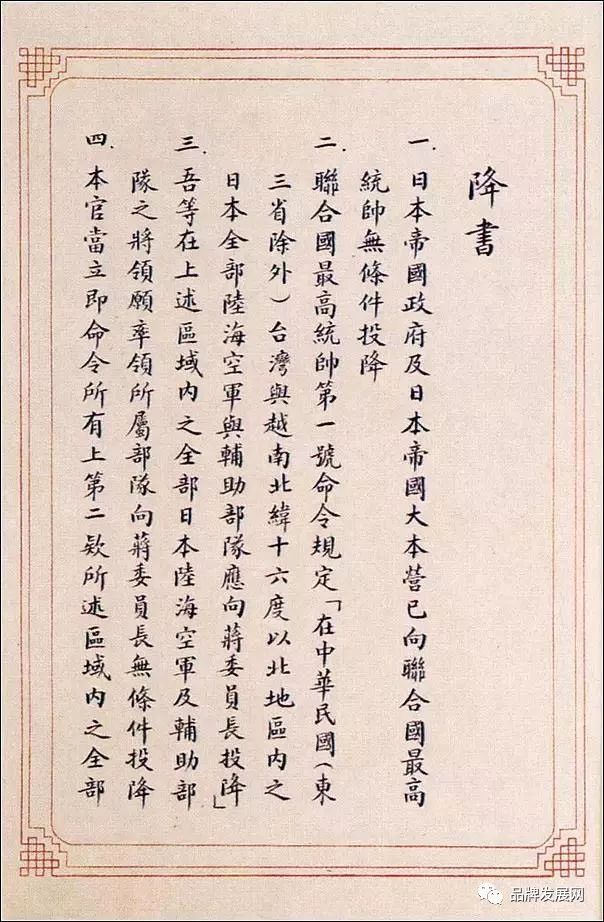 降書
一. 日本帝國政府及日本帝國大本營已向聯合國最高
統帥無條件投降
二. 聯合國最高統帥第一號命令規定「在中華民國（東
三省除外）台灣與越南北緯十六度以北地區內之
日本全部陸海空軍與輔助部隊應向蔣委員長投降」
三. 吾等在上述區域內之全部日本陸海空軍及輔助部
隊之將領願率領所屬部隊向蔣委員長無條件投降
四. 本官當立即命令所有上第二欵所述區域內之全部
品牌发展网